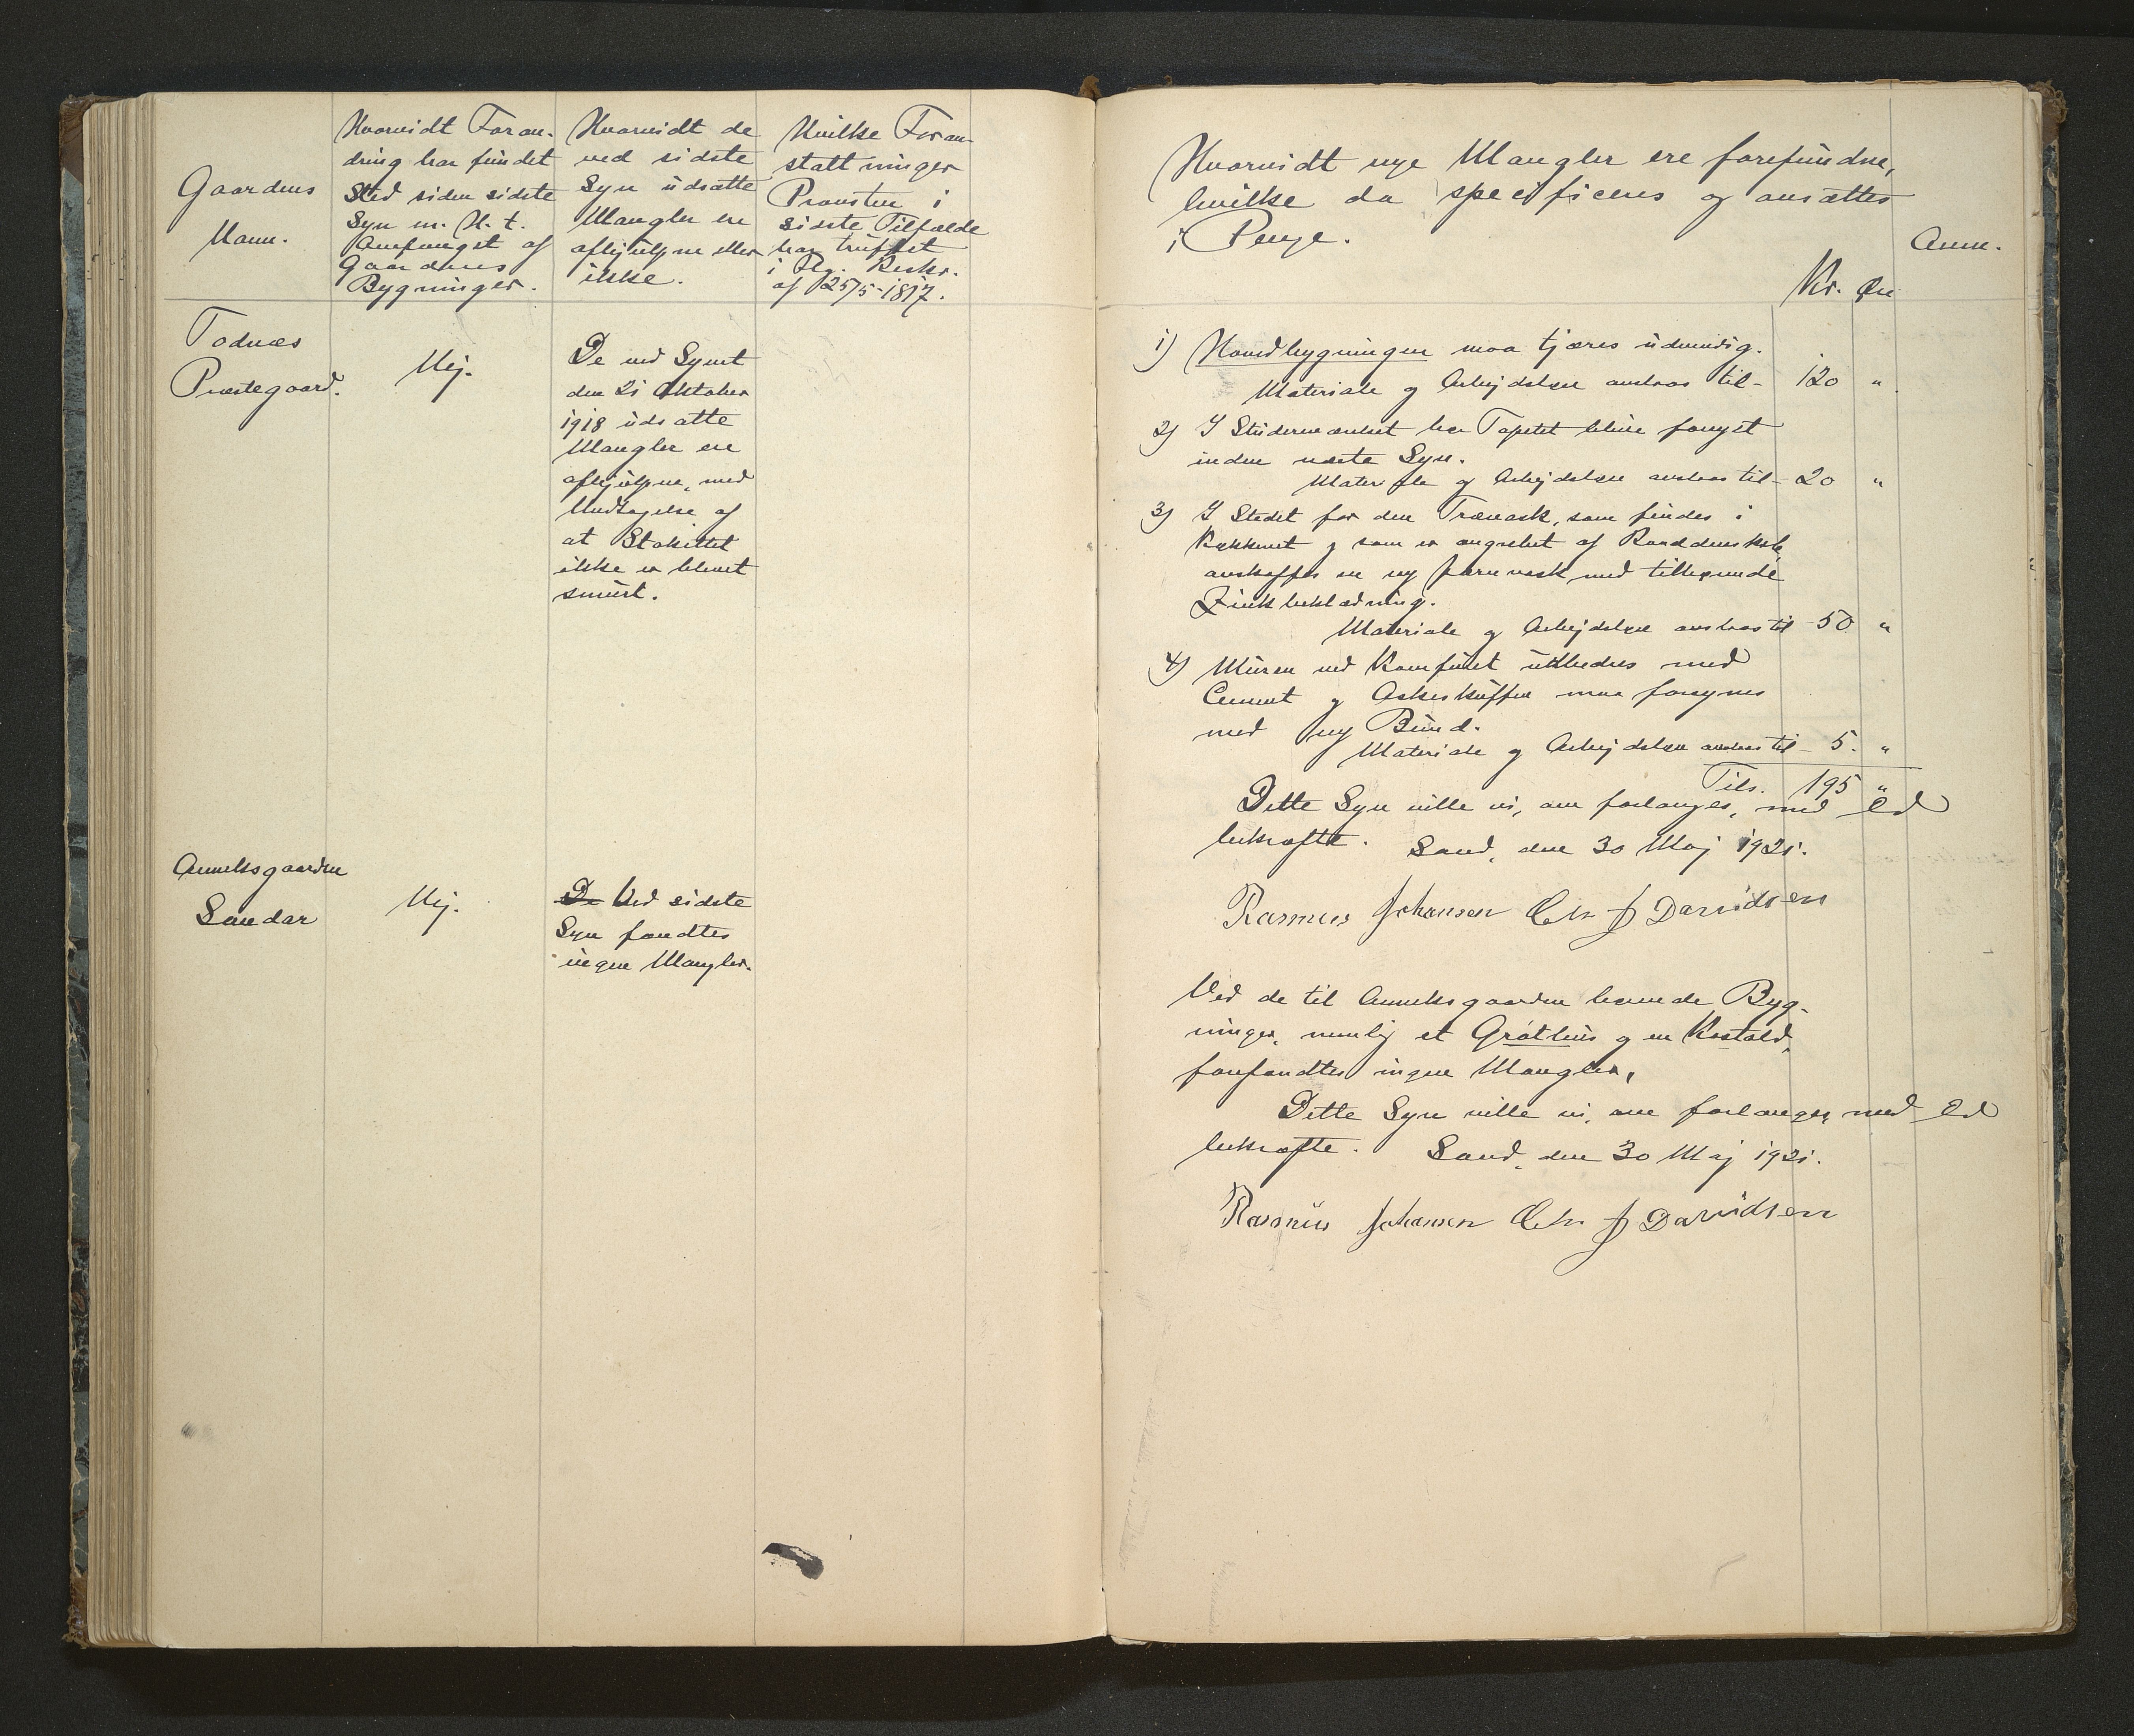 Gaardens
Navn.
Hvorvidt Foran-
dring har fundet
Sted siden sidste
Syn m. H. t.
Omfanget af
Gaardens
Bygninger.
Hvorvidt de
ved sidste
Syn udsatte
Mangler ere
afhjulpne eller
ikke.
Hvilke Foran-
staltninger
Provsten i
sidste Tilfælde
har truffet
i Flg. Reskr.
af 25/5-1817.
Todnæs
Præstegaard.
Nej.
De ved Synet
den 21 Oktober
1918 udsatte
Mangler ere
afhjulpne, med
Undtagelse af
at Stakittet
ikke er blevet
smurt.
Anneksgaarden
Sandar
Nej.
De Ved sidste
Syn fandtes
ingen Mangler.
Hvorvidt nye Mangler ere forefundne,
hvilke da specificeres og ansættes
i Penge.
Anm.
Kr. Øre
1) Hovedbygningen maa tjæres udvendig.
Materiale og Arbejdsløn anslaas til - 120 "
2) I Studerværelset bør Tapetet blive fornyet
inden næste Syn.
Materiale og Arbejdsløn anslaas til - 20 "
3) I Stedet for den Trævask, som findes i
Køkkenet og som er angrebet af
anskaffes en ny Jernvask med tilhørende
Zinkbeklædning.
Materiale og Arbejdsløn anslaas til - 50 "
4) Muren ved Komfuret udbedres med
Cement og Askeskuffen maa forsynes
med ny Bund.
Materiale og Arbejdsløn anslaas til - 5. "
Tils. 195 "
Dette Syn ville vi, om forlanges, med Ed
bekræfte. Sand, den 30 Maj 1921.
Rasmus Johansen Chr J Davidsen
Ved de til Anneksgaarden hørende Byg-
ninger, nemlig et Gróthus og en Kostald,
forefandtes ingen Mangler.
Dette Syn ville vi, om forlanges, med Ed
bekræfte. Sand, den 30 Maj 1921.
Rasmus Johansen Chr J Davidsen